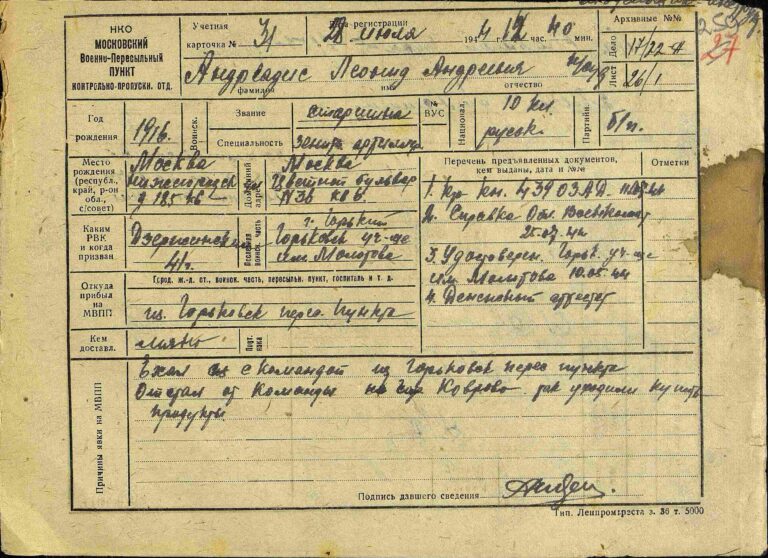 НКО
МОСКОВСКИЙ
Военно-Пересыльный
ПУНКТ
КОНТРОЛЬНО-ПРОПУСКН. ОТД.
Учетная
карточка № 31
Дата регистрации
28 июля 1944 12 час. 40 мин.
Архивные №№
27
Дело 17/22
Лист 26/1
Андреадис Леонид Андреевич
фамилия имя отчество
Год
рождения
1916.
Воинск.
Звание
старшина
Специальность
зенит артиллер
ВУС
Национал.
10 кл
русск.
Партийн.
б/п.
Место
рождения
(республ.,
край, р-он
обл.,
с/совет)
Москва
нижегородск
д 125 кв
Домашний
адрес
Москва
Цветной бульвар
кв 6.
Перечень предъявленных документов,
кем выданы, дата и №№
Отметки
1. Кр кн. 43903 АД
2. Справка
25.07.44
3. Удостоверен. Горьк. уч-ще
им. Молотова 10.05.44
4. Денежный аттестат
Каким
РВК
и когда
призван
Дзержинск
41г.
Последняя
воинск. часть
г. Горький
Горьковск уч-ще
им. Молотова
Откуда
прибыл
на
МВПП
Город, ж.-д. ст., воинск. часть, пересыльн. пункт, госпиталь и т. д.
из Горьковск перес. пункта
Кем
доставл.
лично
Причины явки на МВПП
Ехал с командой из Горьковск перес пункта
Отстал от команды на Коврово так уходили купить
продукты
Подпись давшего сведения
Тип. Ленпромтреста з. 36 т. 5000